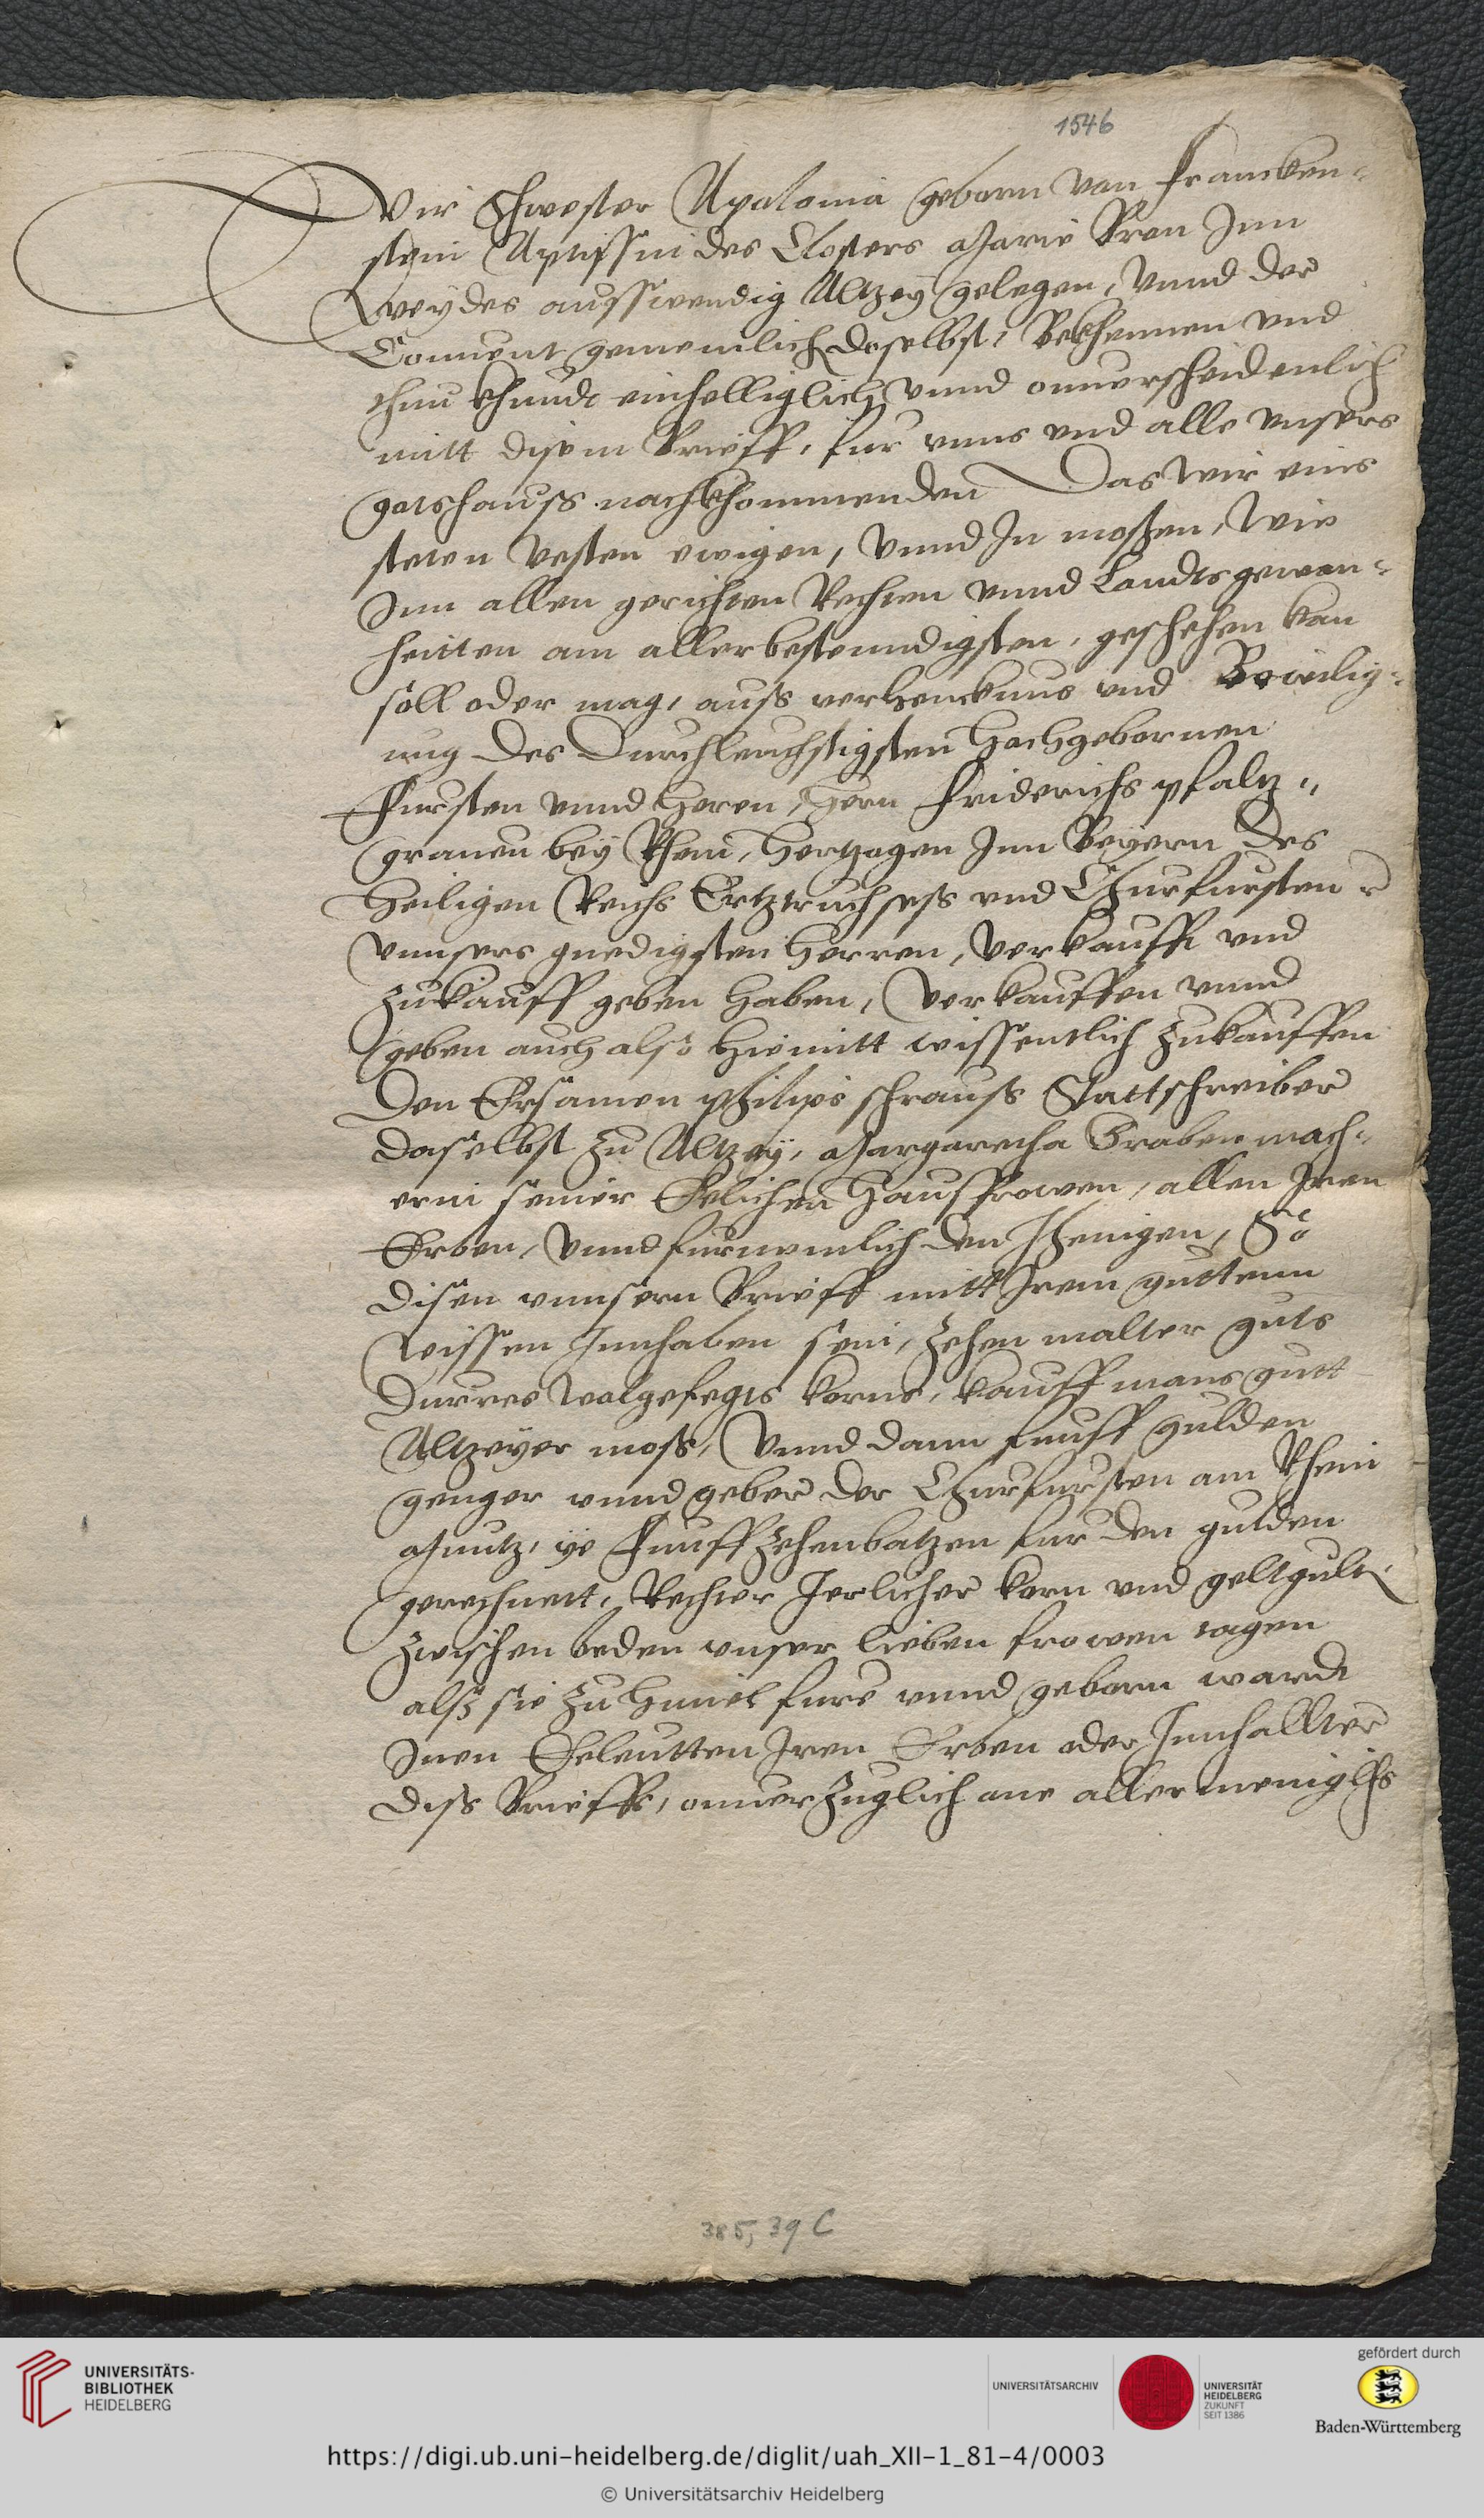 1546
Wir Schwester Apolonia geborn von Francken-
stein Aptissin des Closters Marie Kron Inn
Weydes ausswendig Altzey gelegen, Vnnd der
Conuent gemeinlich doselbst, Bekhennen vnd
thun khundt einhelliglich vnnd onnuerscheidenlich
mitt disem Brieff, fur vnns vnd alle vnsers
gotshauss nachkhommenden Das wir eins
steten vesten ewigen, Vnnd In moßen, Wie
Inn allen gerichten Rechten vnnd Landts gewon-
heitten am allerbestenndigsten, geschehen kan
soll oder mag, auß verhencknus vnd Bewilig-
ung des Durchleuchtigsten Hochgebornen
Fursten vnnd Heren, Hern Friderichs pfaltz-
grauen bey Rhein, Hertzogen Inn Beyern des
Heiligen Reichs Ertztruchseß vnd Churfursten
vnnsers gnedigsten Herren, Verkaufft vnd
Zukauff geben haben, Verkauffen vnnd
geben auch also hiemitt wissentlich Zukauffen
Den Ersamen philips schrauß Stattschreiber
doselbst zu Altzey, Margaretha Graben mach-
erin seiner Eelichen Haußfrowen, allen Iren
Erben, Vnnd furnemlich den Jhenigen, So
disen vnnsern Brieff mitt Irem guttenn
Wissen Innhaben sein, Zehen malter guts
Durres wolgefegts korns, kauffmans gutt
Altzeyer moß, Vnnd dann funff gulden
genger vnnd geber der Churfursten am Rhein
Muntz, ye Funffzehenbatzen fur den gulden
gerechnett, Rechter Jerlicher korn vnd geltgult
Zwischen beden vnser lieben frowen tagen
alß sie zu Himel fure vnnd geborn wardt
Inen Eeleutten Iren Erben oder Innhallter
diß Brieffs, onnuerzuglich one allermeniglichs
385, 39 C
UNIVERSITÄTS-
BIBLIOTHEK
HEIDELBERG
UNIVERSITÄTSARCHIV
UNIVERSITÄT
HEIDELBERG
ZUKUNFT
SEIT 1386
gefördert durch
Baden-Württemberg
https://digi.ub.uni-heidelberg.de/diglit/uah_XII-1_81-4/0003
© Universitätsarchiv Heidelberg